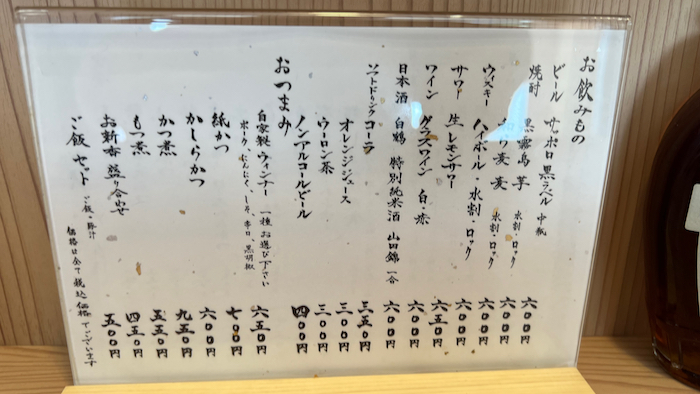 お飲みもの
ビール サッポロ黒ラベル 中瓶 六〇〇円
焼酎 黒霧島 芋 水割・ロック 六〇〇円
麦 水割・ロック 六〇〇円
ウィスキー ハイボール・水割・ロック 六〇〇円
サワー 生レモンサワー 六五〇円
ワイン グラスワイン 白・赤 六〇〇円
日本酒 白鶴 特別純米酒 山田錦 一合 六〇〇円
ソフトドリンク コーラ 三五〇円
オレンジジュース 三〇〇円
ウーロン茶 三〇〇円
ノンアルコールビール 四〇〇円
おつまみ
自家製 ウィンナー 一種お選び下さい 六五〇円
ポーク、にんにく、しそ、辛口、黒胡椒 七〇〇円
紙かつ 六〇〇円
かしらかつ 九五〇円
かつ煮 五五〇円
もつ煮 四五〇円
お新香 盛り合せ 五〇〇円
ご飯セット ご飯・豚汁
価格は全て税込価格でございます